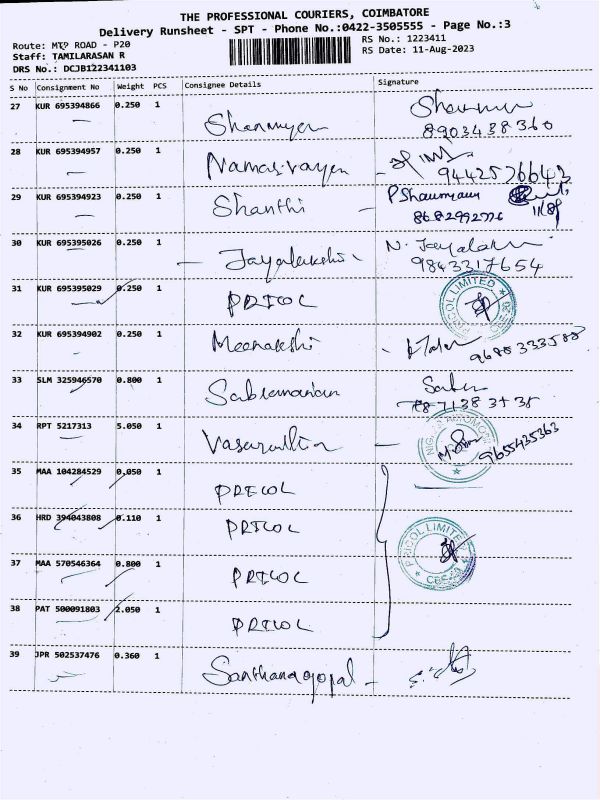 THE PROFESSIONAL COURIERS, COIMBATORE
Delivery Runsheet - SPT - Phone No.:0422-3505555 - Page No.:3
Route: MTP ROAD - P20
RS No.: 1223411
Staff: TAMILARASAN R
RS Date: 11-Aug-2023
DRS No.: DCJB122341103
S No Consignment No Weight PCS Consignee Details Signature
27 KUR 695394866 0.250 1 Shanmugam
8903438360
28 KUR 695394957 0.250 1 Namasivayam
9442576643
29 KUR 695394923 0.250 1 Shanthi P Shanmugam
8682992726 11/8
30 KUR 695395026 0.250 1 Jayalakshmi N. Jayalakshmi
9843317654
31 KUR 695395029 0.250 1 PRICOL PRICOL LIMITED
32 KUR 695394902 0.250 1 Meenakshi
33 SLM 325946570 0.800 1 Subramanian
34 RPT 5217313 5.050 1
9655435363
35 MAA 104284529 0.050 1 PRICOL
36 HRD 394043808 0.110 1 PRICOL PRICOL LIMITED
37 MAA 570546364 0.800 1 PRICOL
38 PAT 500091803 2.050 1 PRICOL
39 JPR 502537476 0.360 1 Santhanagopal